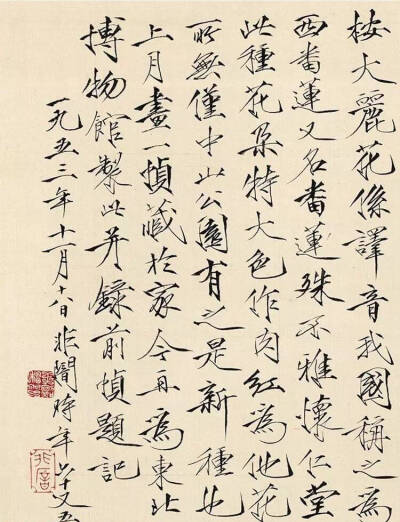 按大麗花係譯音我國稱之爲
西番蓮又名番蓮殊不雅懷仁堂
此種花朵特大色作肉紅爲他花
所無僅中山公園有之是新種也
上月畫一幀藏於家今再爲東北
博物館製此并錄前幀題記
一九五三年十一月十八日非闇時年六十又五